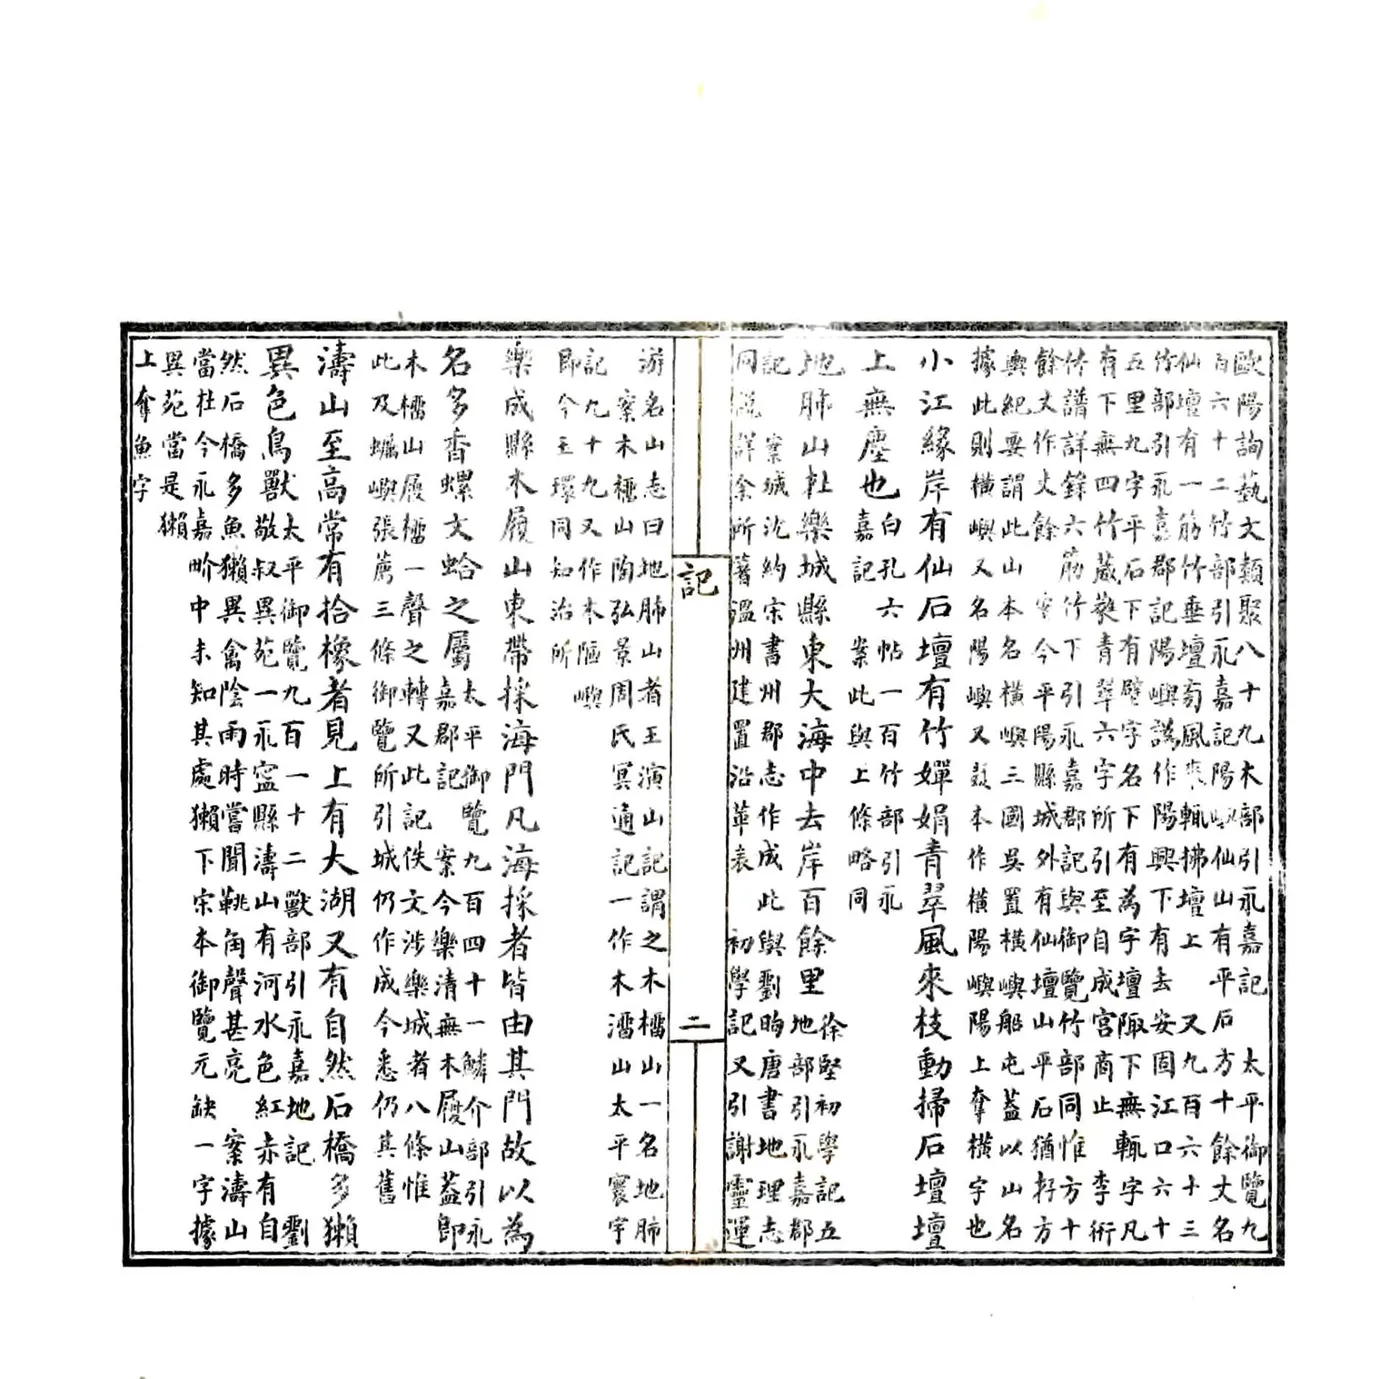 歐陽詢藝文類聚八十九木部引永嘉記 太平御覽九
百六十二竹部引永嘉記陽嶼仙山有平石方十餘丈名
仙壇有一筋竹垂壇旁風來輒拂壇上 又九百六十三
竹部引永嘉郡記陽嶼譌作陽興下有去安固江口六十
五里九字平石下有壁字名下有為字壇陬下無輒字凡
有下無四竹葳蕤青翠六字所引至自成宮商止 李衎
竹譜詳錄六筋竹下引永嘉郡記與御覽竹部同惟方十
餘丈作丈餘 案今平陽縣城外有仙壇山平石猶存方
輿紀要謂此山本名橫嶼三國吳置橫嶼船屯蓋以山名
據此則橫嶼又名陽嶼又疑本作橫陽嶼陽上奪橫字也
小江緣岸有仙石壇有竹嬋娟青翠風來枝動掃石壇壇
上無塵也 白孔六帖一百竹部引永
嘉記 案此與上條略同
地肺山社樂城縣東大海中去岸百餘里 徐堅初學記五
地部引永嘉郡
記 案城沈約宋書州郡志作成此與劉昫唐書地理志
同說詳余所著溫州建置沿革表 初學記又引謝靈運
記
二
游名山志曰地肺山者王演山記謂之木橊山一名地肺
案木橊山陶弘景周氏冥通記一作木溜山太平寰宇
記九十九又作木陋嶼
即今玉環同知治所
樂成縣木履山東帶採海門凡海採者皆由其門故以為
名多香螺文蛤之屬 太平御覽九百四十一鱗介部引永
嘉郡記 案今樂清無木履山蓋即
木橊山履橊一聲之轉又此記佚文涉樂城者八條惟
此及蠣嶼張薦三條御覽所引城仍作成今悉仍其舊
濤山至高常有拾橡者見上有大湖又有自然石橋多獺
異色鳥獸 太平御覽九百一十二獸部引永嘉地記 劉
敬叔異苑一永寍縣濤山有河水色紅赤有自
然石橋多魚獺異禽陰雨時嘗聞鞉角聲甚亮 案濤山
當杜今永嘉畍中未知其處獺下宋本御覽元缺一字據
異苑當是獺
上奪魚字